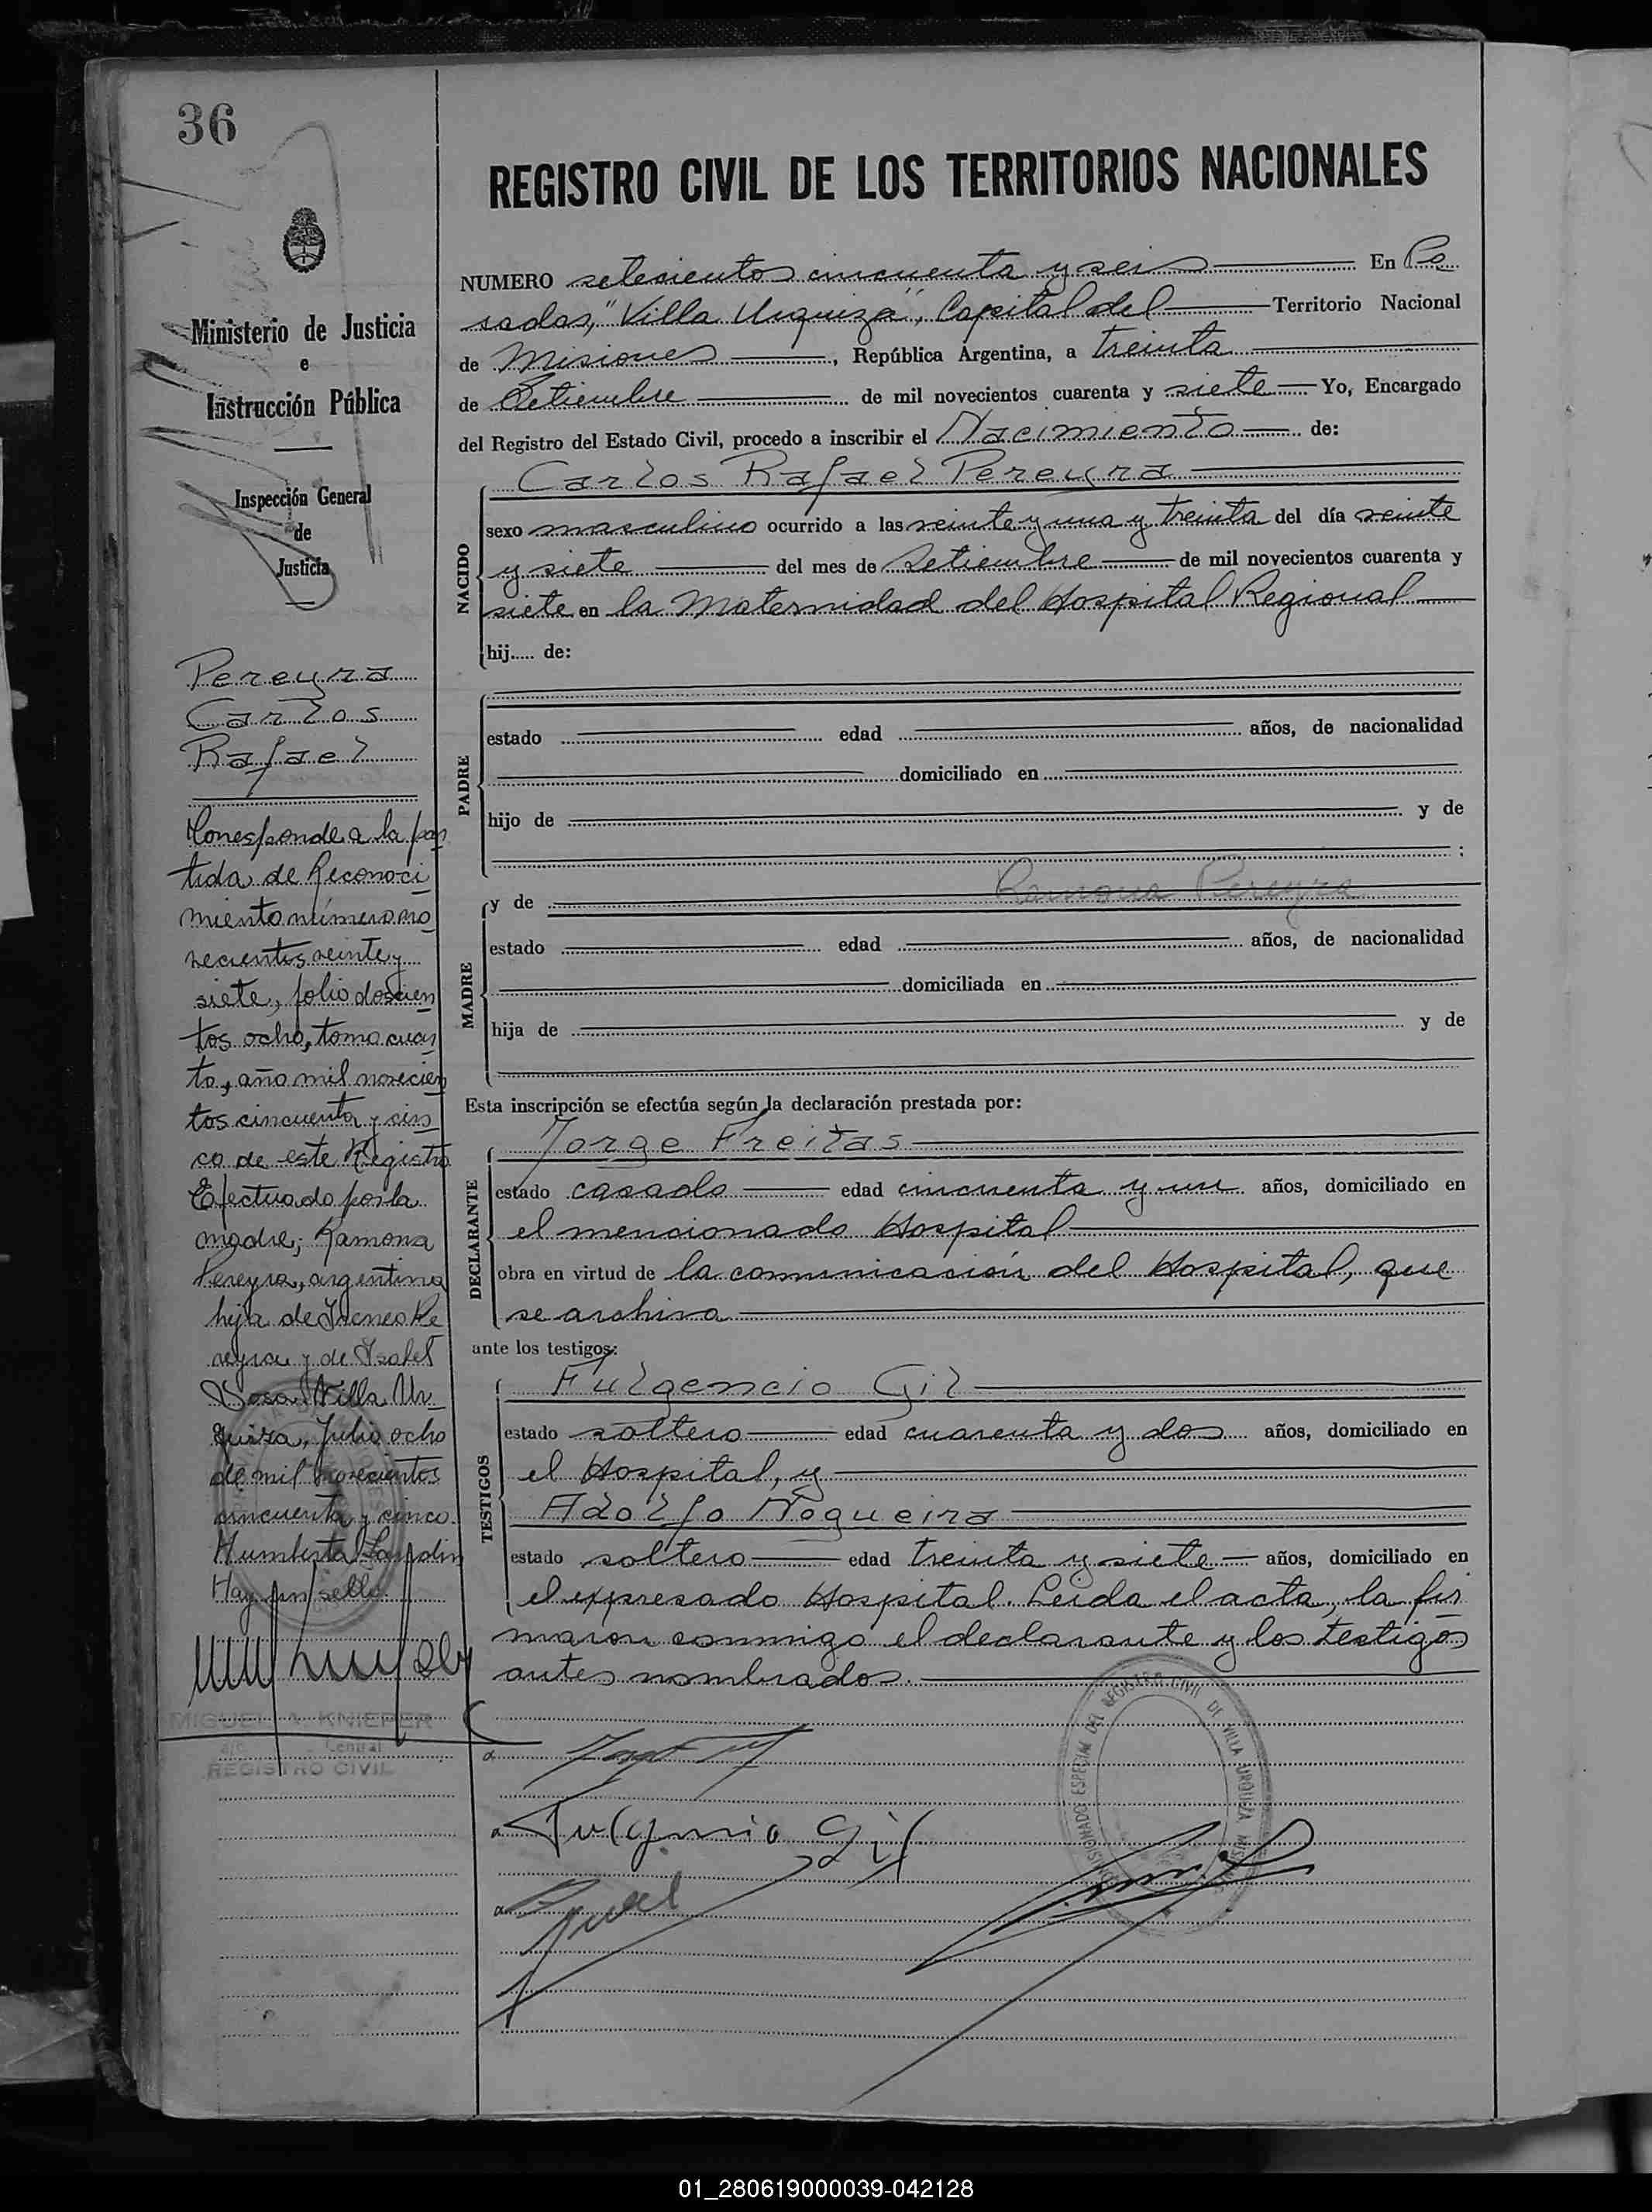 36
Ministerio de Justicia
e
Instrucción Pública
Inspección General
de
Justicia
Pereyra
Carlos
Rafael
Corresponde a la par
tida de Reconoci
miento número no
vecientos veinte y
siete, folio doscien
tos ocho, tomo cuar
to, año mil novecien
tos cincuenta y cin
co de este Registro
Efectuado por la
madre; Ramona
Pereyra, argentina
hija de Ireneo Pe
reyra y de Isabel
Sosa. Villa Ur
quiza, Julio ocho
de mil novecientos
cincuenta y cinco.
Humberto
Hay un sello.
MIGUEL A. KNIEPER
Central
REGISTRO CIVIL
REGISTRO CIVIL DE LOS TERRITORIOS NACIONALES
NUMERO setecientos cincuenta y seis En Po
sadas, "Villa Urquiza", Capital del Territorio Nacional
de Misiones, República Argentina, a treinta
de Setiembre de mil novecientos cuarenta y siete Yo, Encargado
del Registro del Estado Civil, procedo a inscribir el Nacimiento de:
Carlos Rafael Pereyra
NACIDO
sexo masculino ocurrido a las veinte y una y treinta del día veinte
y siete del mes de Setiembre de mil novecientos cuarenta y
siete en la Maternidad del Hospital Regional
hij..... de:
PADRE
estado edad años, de nacionalidad
domiciliado en
hijo de y de
;
MADRE
y de Ramona Pereyra
estado edad años, de nacionalidad
domiciliada en
hija de y de
Esta inscripción se efectúa según la declaración prestada por:
Jorge Freitas
DECLARANTE
estado casado edad cincuenta y un años, domiciliado en
el mencionado Hospital
obra en virtud de la comunicación del Hospital, que
se archiva
ante los testigos:
Fulgencio Gil
TESTIGOS
estado soltero edad cuarenta y dos años, domiciliado en
el Hospital, y
Adolfo Nogueira
estado soltero edad treinta y siete años, domiciliado en
el expresado Hospital. Leida el acta, la fir
maron conmigo el declarante y los testigos
antes nombrados.
Fulgencio Gil
COMISIONADO ESPECIAL DEL REGISTRO CIVIL DE VILLA URQUIZA
01_280619000039-042128